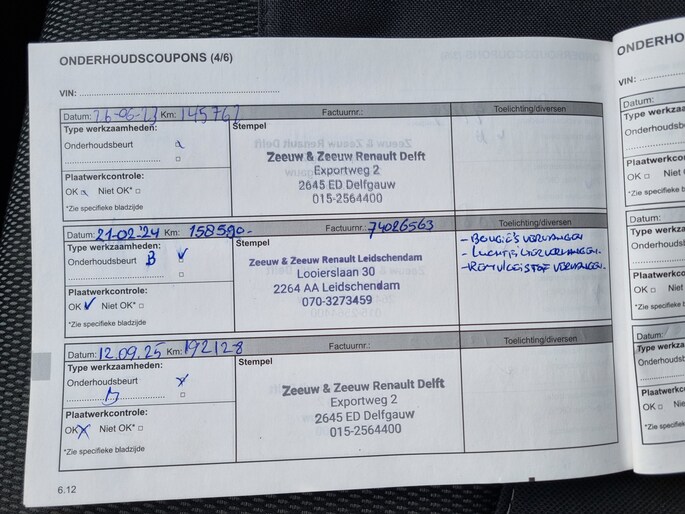 ONDERHOUDSCOUPONS (4/6)
VIN:
Datum: 26-06-23 Km: 145762 Factuurnr.: Toelichting/diversen
Type werkzaamheden: Stempel
Onderhoudsbeurt
Zeeuw & Zeeuw Renault Delft
Exportweg 2
2645 ED Delfgauw
015-2564400
Plaatwerkcontrole:
OK Niet OK*
*Zie specifieke bladzijde
Datum: 21-02-'24 Km: 158590- Factuurnr.: 74026563 Toelichting/diversen
Type werkzaamheden: Stempel
Onderhoudsbeurt B
Zeeuw & Zeeuw Renault Leidschendam
Looierslaan 30
2264 AA Leidschendam
070-3273459
- BOUGIE'S VERVANGEN
- LUCHTFILTER VERVANGEN.
- REMVLOEISTOF VERVANGEN.
Plaatwerkcontrole:
OK Niet OK*
*Zie specifieke bladzijde
Datum: 12.09.25 Km: 192128 Factuurnr.: Toelichting/diversen
Type werkzaamheden: Stempel
Onderhoudsbeurt
Zeeuw & Zeeuw Renault Delft
Exportweg 2
2645 ED Delfgauw
015-2564400
Plaatwerkcontrole:
OK Niet OK*
*Zie specifieke bladzijde
6.12
ONDERHO
VIN:
Datum:
Type werkza
Onderhoudsbeu
Plaatwerkcon
OK Niet
*Zie specifieke b
Datum:
Type werkza
Onderhoudsb
Plaatwerkco
OK Nie
*Zie specifieke
Datum:
Type werkza
Onderhouds
Plaatwerkc
OK Nie
*Zie specifie